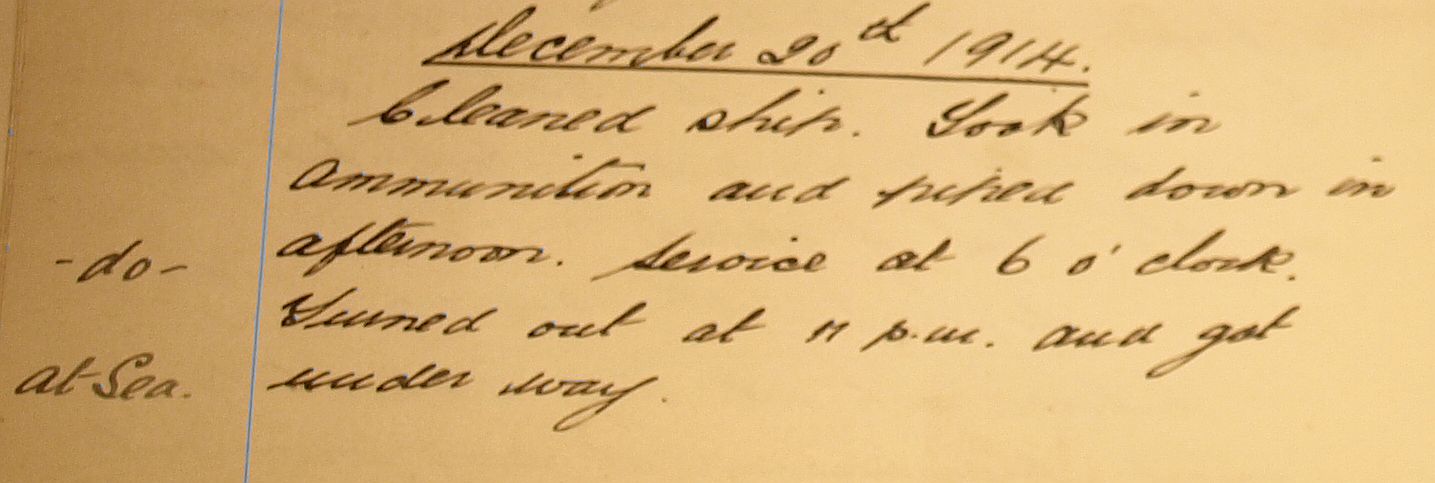 December 20th 1914.
Cleaned ship. Took in
ammunition and piped down in
-do- afternoon. Service at 6 o'clock.
Turned out at 11 p.m. and got
at Sea. under way.